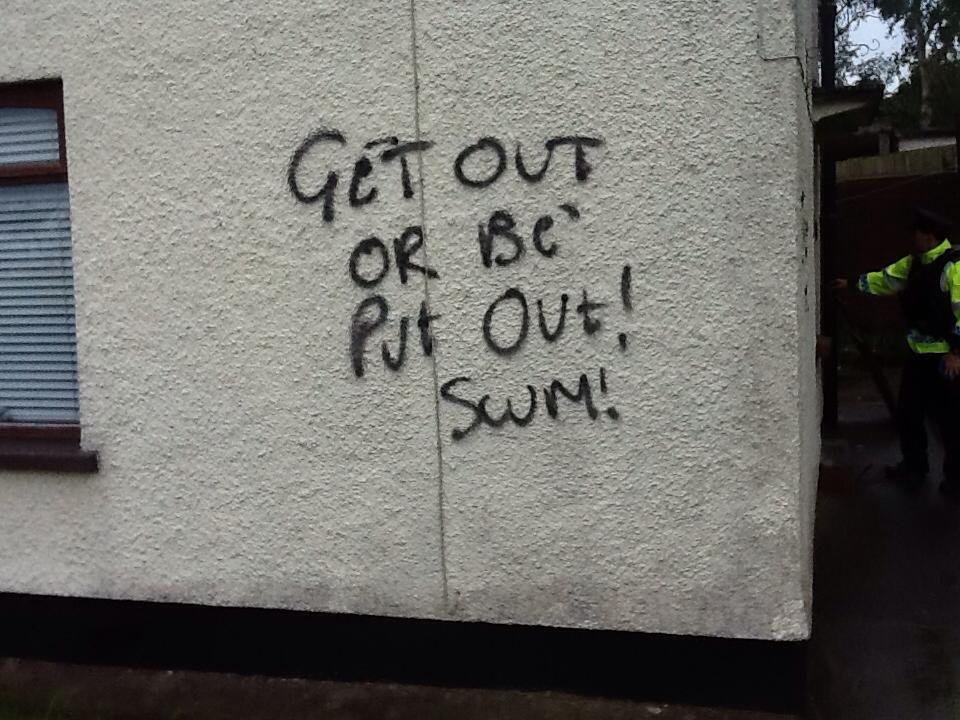 GET OUT
OR BE
Put Out!
Scum!